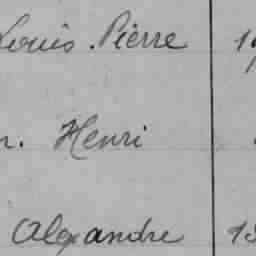 Louis. Pierre 1
n. Henri
Alexandre 18